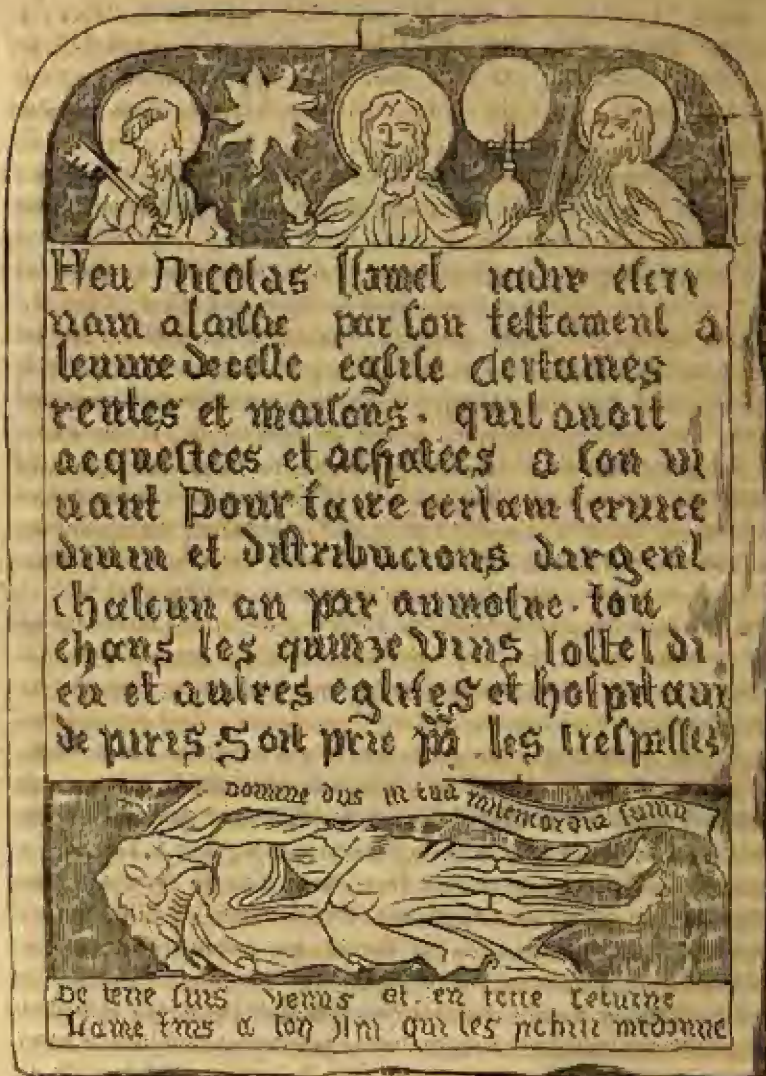 Feu Nicolas flamel iadis escri
uain a laissie par son testament a
leuure de ceste eglise certaines
rentes et maisons. quil auoit
acquestees et achatees a son vi
uant pour faire certain seruice
diuin et distribucions dargent
chascun an par aumosne. tou
chans les quinze vins lostel di
eu et autres eglises et hospitaux
de paris. Soit prie les trespasses
domine dus in tua misericordia
De terre suis venus et en terre retourne
Lame rens a toy qui les